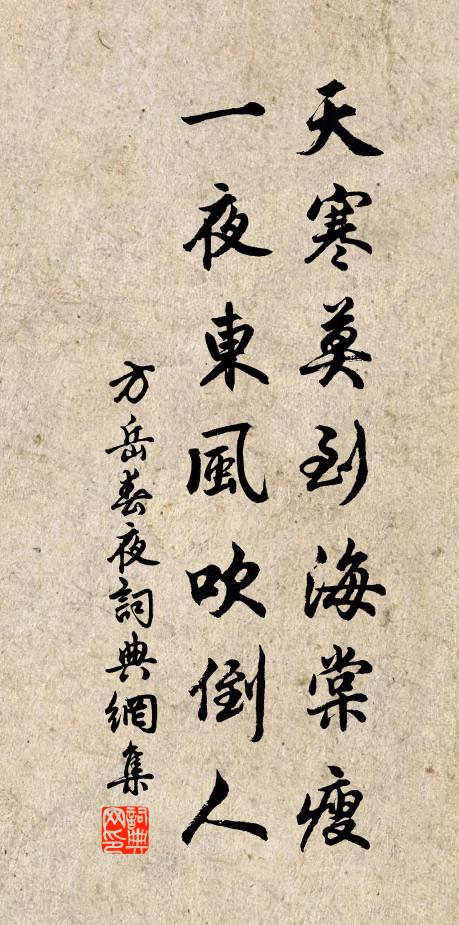 天寒莫到海棠瘦
一夜東風吹倒人
方岳春夜詞典網集
詞典網印